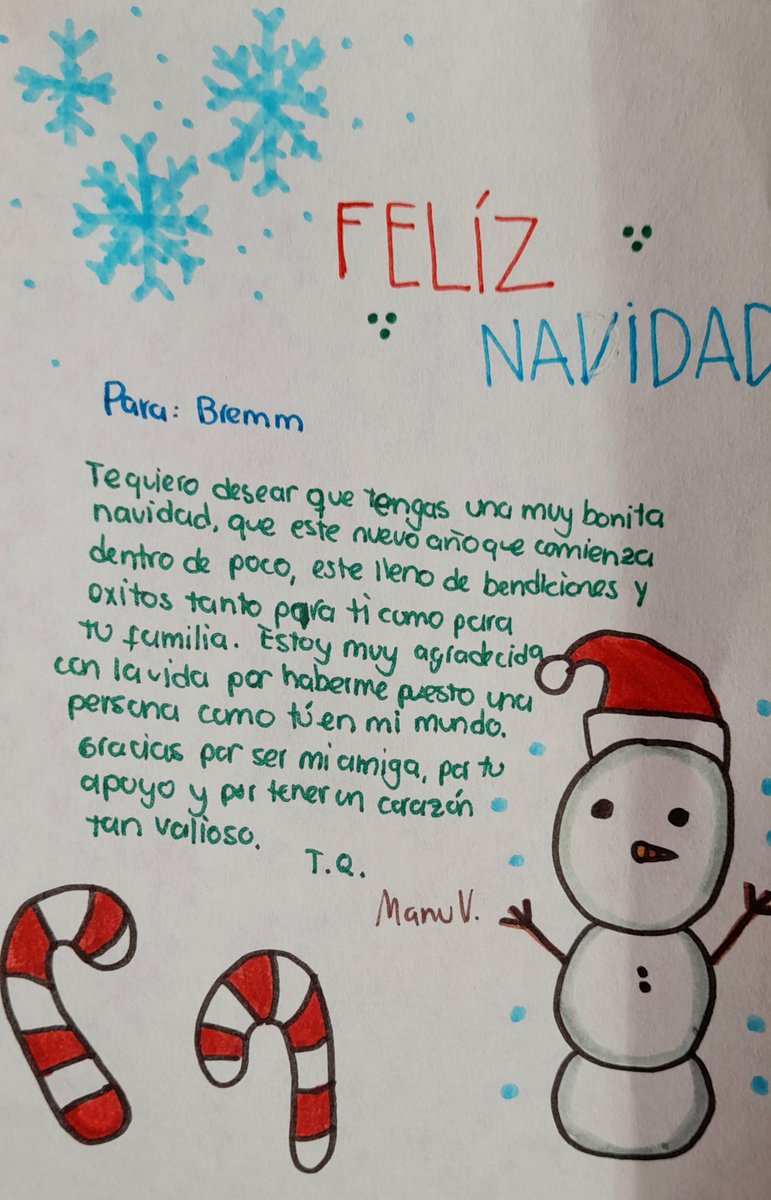 FELÍZ
NAVIDAD
Para: Bremm
Te quiero desear que tengas una muy bonita
navidad, que este nuevo año que comienza
dentro de poco, este lleno de bendiciones y
exitos tanto para ti como para
tu familia. Estoy muy agradecida
con la vida por haberme puesto una
persona como tú en mi mundo.
Gracias por ser mi amiga, por tu
apoyo y por tener un corazón
tan valioso.
T.Q.
Manu V.